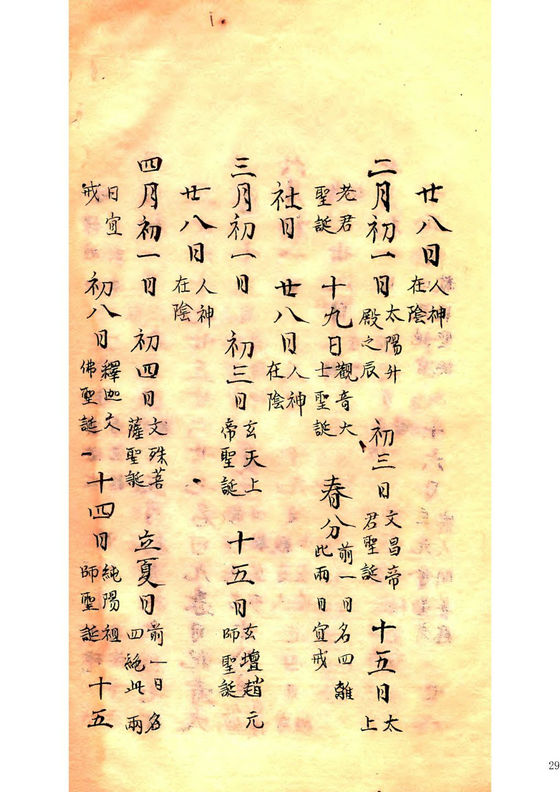 廿八日人神在陰
二月初一日太陽升殿之辰 初三日文昌帝君聖誕 十五日太上
老君聖誕 十九日觀音大士聖誕 春分前一日名四離此兩日宜戒
社日 廿八日人神在陰
三月初一日 初三日玄天上帝聖誕 十五日玄壇趙元師聖誕
廿八日人神在陰
四月初一日 初四日文殊菩薩聖誕 立夏日前一日名四絕此兩
日宜戒 初八日釋迦文佛聖誕 十四日純陽祖師聖誕 十五
29